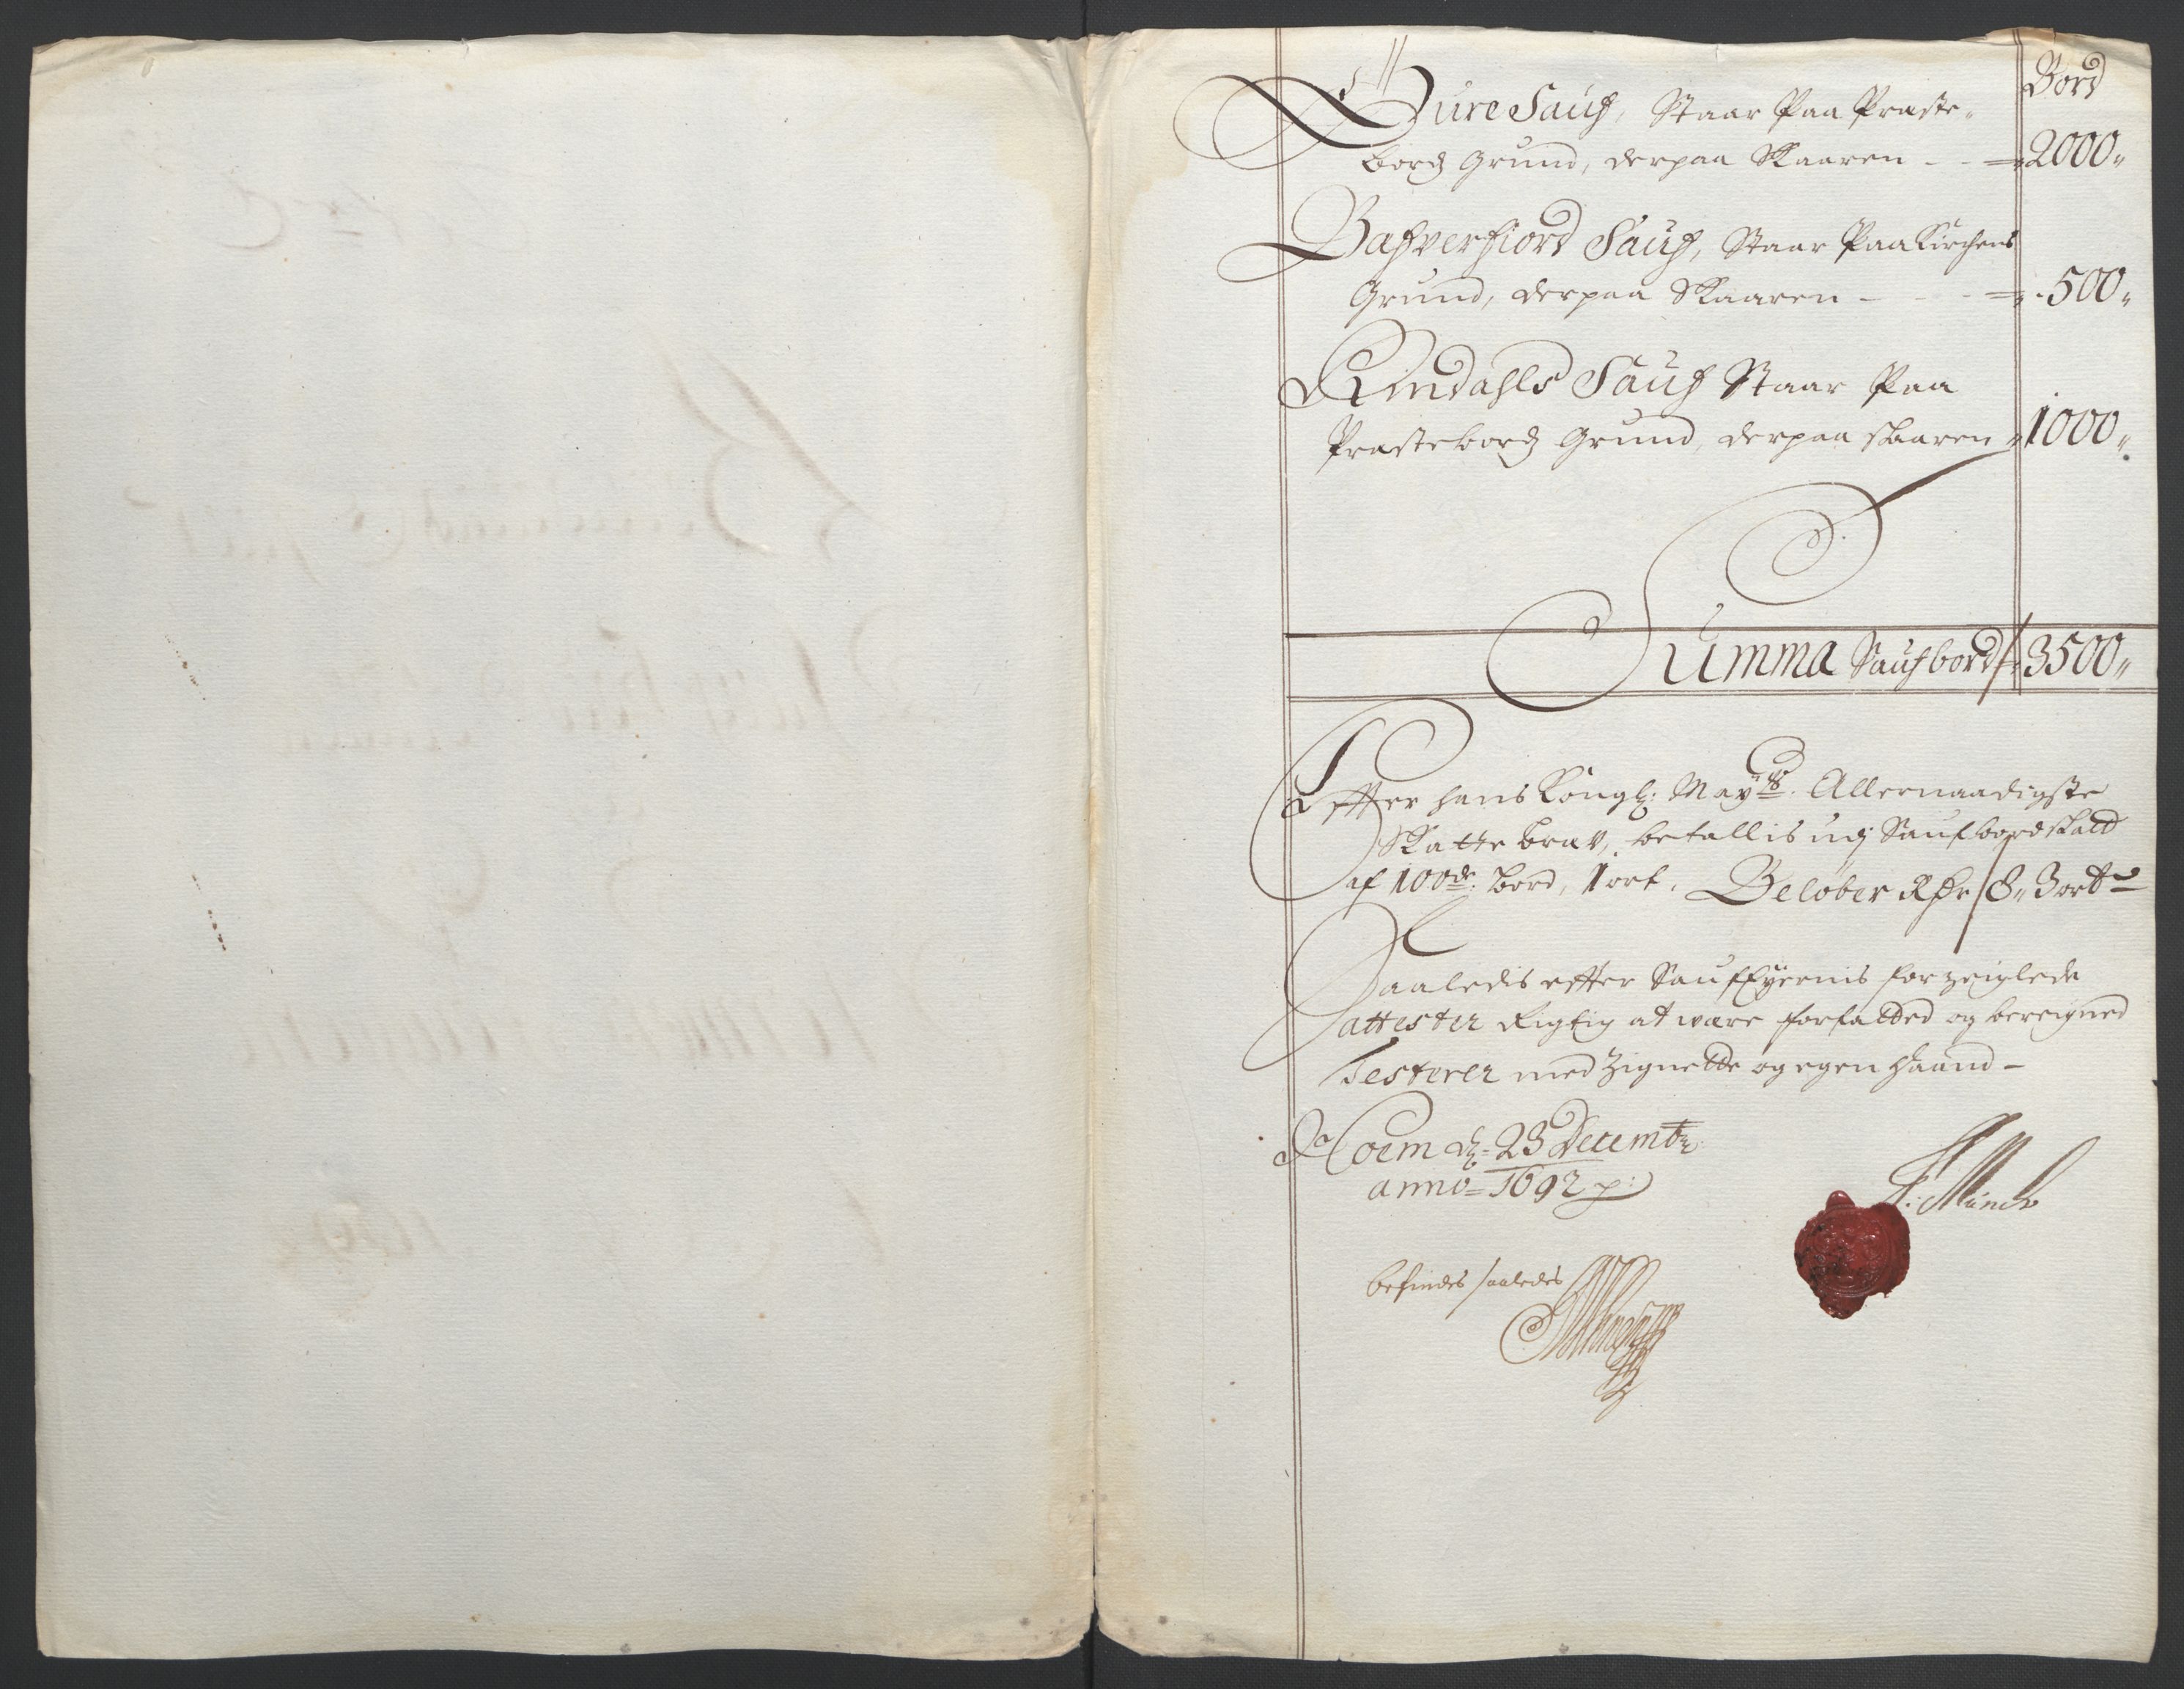 Bord
Bure Saug, Staar Paa Præste-
bordz Grund, derpaa Skaaren - - 2000,,
Bahverfiord Saug, Staar Paa Kirchens
Grund, derpaa Skaaren - - - 500,,
Rindahls Saug Staar Paa
Præstebordz Grund, derpaa skaaren 1000,,
Summa Saugbord 3500,,
Effter hans Kongl: Mayts. Allernaadigste
Skatte brev, betallis udj Saugbordskatt
af 100de bord, 1 ort, Beløber Rdr 8,, 3 ort
Saaledis effter Saugeyernis forzeiglede
attester Rigtig at være forfatted og beregned
Testerer med Zignette og egen Haand -
Coem d: 23 Decembr:
anno = 1692 p:
J: Munch
befindes saaledes